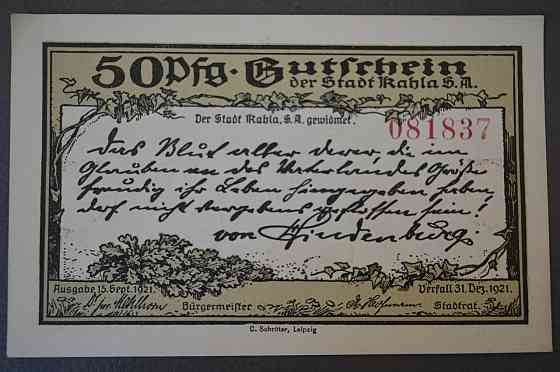 50 Pfg. Gutschein
der Stadt Kahla S.A.
Der Stadt Kahla, S.A. gewidmet.
081837
Das Blut aller derer, die im
Glauben an des Vaterlandes Größe
freudig ihr Leben hingegeben haben,
darf nicht vergebens geflossen sein!
von Hindenburg.
Ausgabe 15. Sept. 1921.
Verfall 31. Dez. 1921.
Bürgermeister
Stadtrat.
C. Schröter, Leipzig